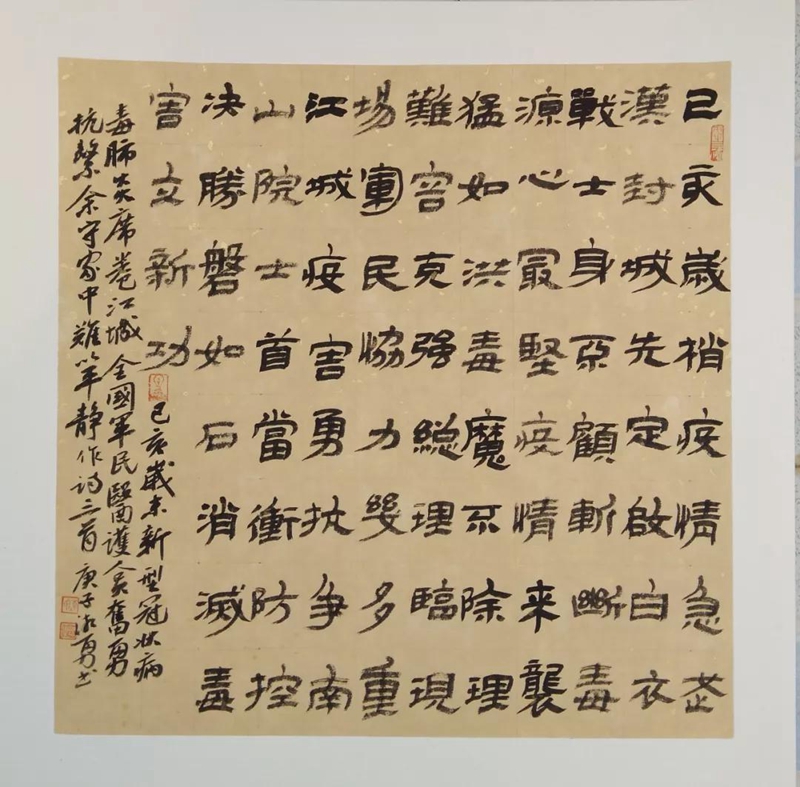 己亥歲梢疫情急武
漢封城先定啟白衣
戰士身不顧斬斷毒
源心最堅疫情来襲
猛如洪毒魔不除理
難容克强總理臨現
場軍民協力多重
江城疫害勇抗争南
山院士首當衝防控
决勝磐如石消滅毒
害立新功
己亥歲末新型冠狀病
毒肺炎席卷江城全國軍民醫護人員奮勇
抗擊余守家中難以平靜作詩三首庚子勇书